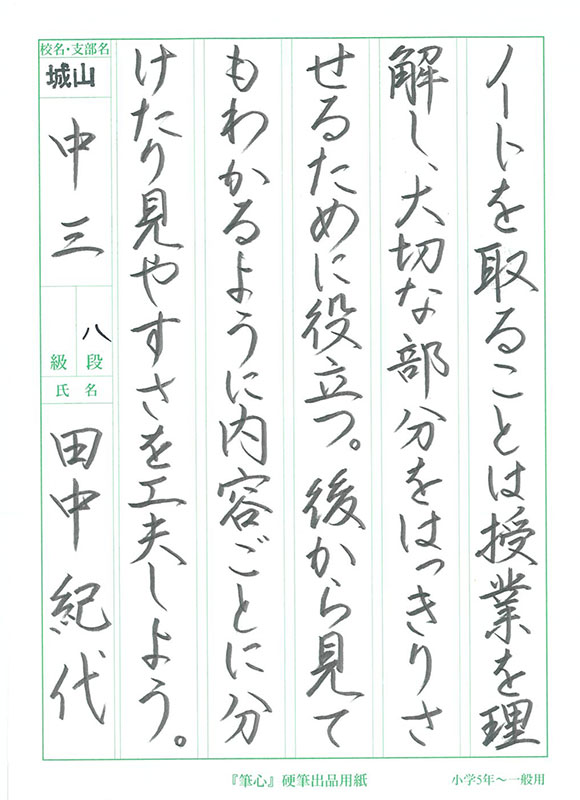 ノートを取ることは授業を理
解し、大切な部分をはっきりさ
せるために役立つ。後から見て
もわかるように内容ごとに分
けたり見やすさを工夫しよう。
校名・支部名
城山
中三
八
段
級
氏名
田中紀代
『筆心』硬筆出品用紙
小学5年～一般用